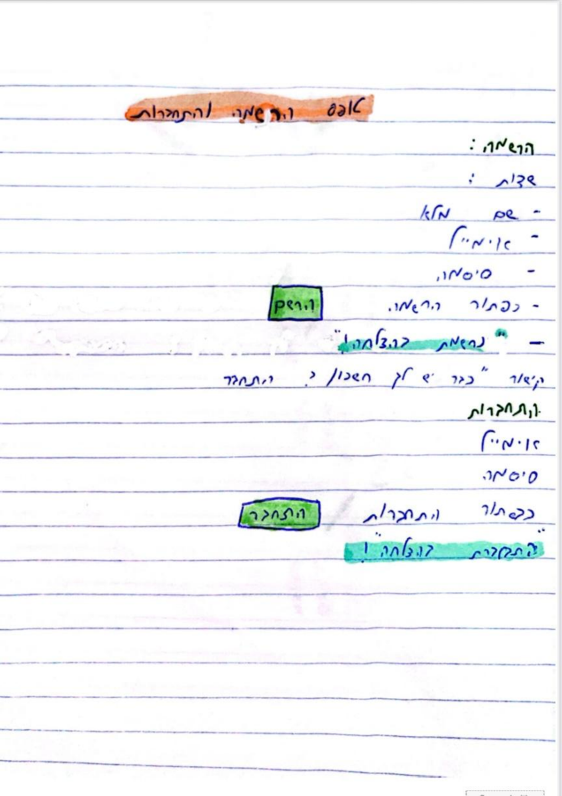 טופס הרשמה והתחברות
הרשמה:
שדות:
- שם מלא
- אימייל
- סיסמה
- כפתור הרשמה. הרשם
- "נרשמת בהצלחה!"
קישור "כבר יש לך חשבון? התחבר
התחברות
אימייל
סיסמה
כפתור התחברות התחבר
"התחברת בהצלחה"!